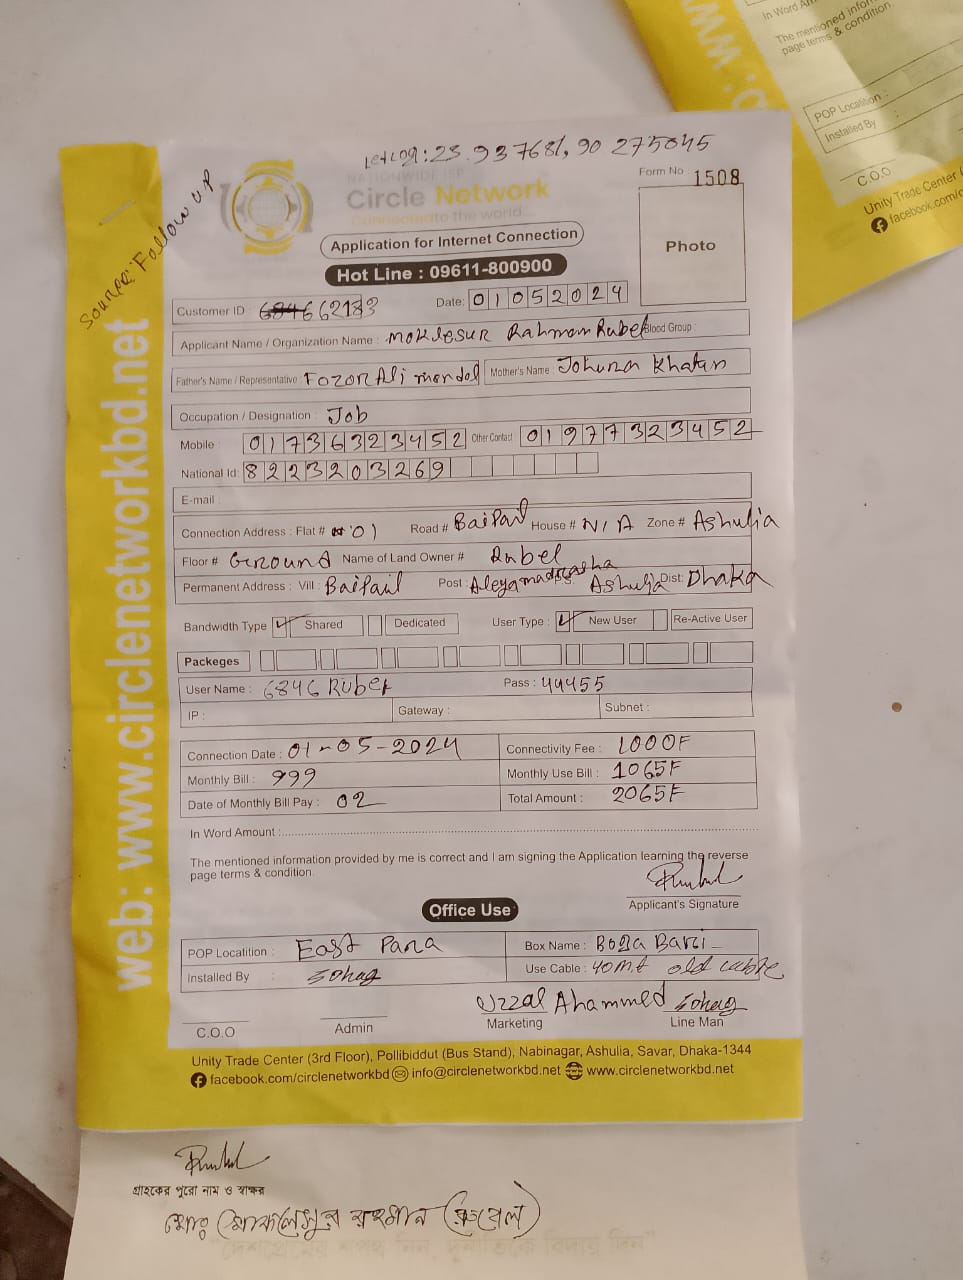 Let Log: 23.937681, 90 275045
Source: Follow UP
NATIONWIDE ISP
Circle Network
Connected to the world...
Form No 1508
Application for Internet Connection
Photo
Hot Line : 09611-800900
Customer ID 662133
Date: 01052024
Applicant Name / Organization Name : Moklesur Rahman Rubel Blood Group :
Father's Name / Representative Fozor Ali mondol Mother's Name : Johura Khatun
Occupation / Designation : Job
Mobile : 01736323452 Other Contact 01977323452
National Id: 8223203269
E-mail :
Connection Address : Flat # 01 Road # Baipail House # N/A Zone # Ashulia
Floor # Ground Name of Land Owner # Rubel
Permanent Address : Vill : Baipail Post : Aleyamadrasha Ashulia Dist: Dhaka
Bandwidth Type ✓ Shared Dedicated User Type : ✓ New User Re-Active User
Packeges
User Name : 6846 Rubel Pass : 44455
IP : Gateway : Subnet :
Connection Date : 01-05-2024 Connectivity Fee : 1000F
Monthly Bill : 999 Monthly Use Bill : 1065F
Date of Monthly Bill Pay : 02 Total Amount : 2065F
In Word Amount :
The mentioned information provided by me is correct and I am signing the Application learning the reverse
page terms & condition.
Applicant's Signature
Office Use
POP Locatition : East Para Box Name : Boga Bari
Installed By : Sohag Use Cable : 40mt old cable
Uzzal Ahammed Sohag
C.O.O Admin Marketing Line Man
Unity Trade Center (3rd Floor), Pollibiddut (Bus Stand), Nabinagar, Ashulia, Savar, Dhaka-1344
facebook.com/circlenetworkbd info@circlenetworkbd.net www.circlenetworkbd.net
web: www.circlenetworkbd.net
গ্রাহকের পুরো নাম ও স্বাক্ষর
মোঃ মোকলেসুর রহমান (রুবেল)
In Word Am
The mentioned infor
page terms & condition.
POP Locatition :
Installed By :
C.O.O
Unity Trade Center (
facebook.com/c